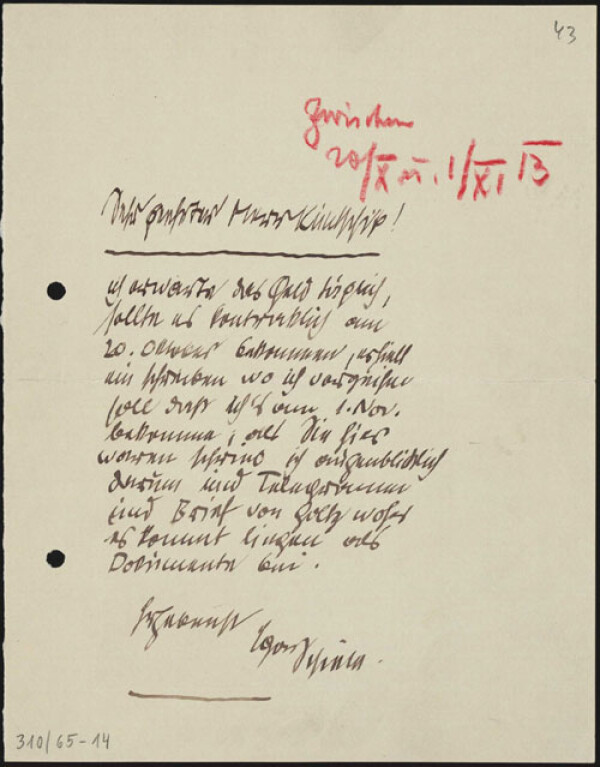 43
Zwischen
20/X u. 1/XI 13
Sehr geehrter Herr
ich erwarte das Geld täglich,
sollte es kontraktlich am
20. Oktober bekommen, erhielt
ein Schreiben wo ich verzeihen
soll daß ich's am 1. Nov.
bekomme; als Sie hier
waren schrieb ich augenblicklich
darum und Telegramm
und Brief von Goltz woher
es kommt liegen als
Dokumente bei.
Ergebenst
Egon Schiele.
310/65-14